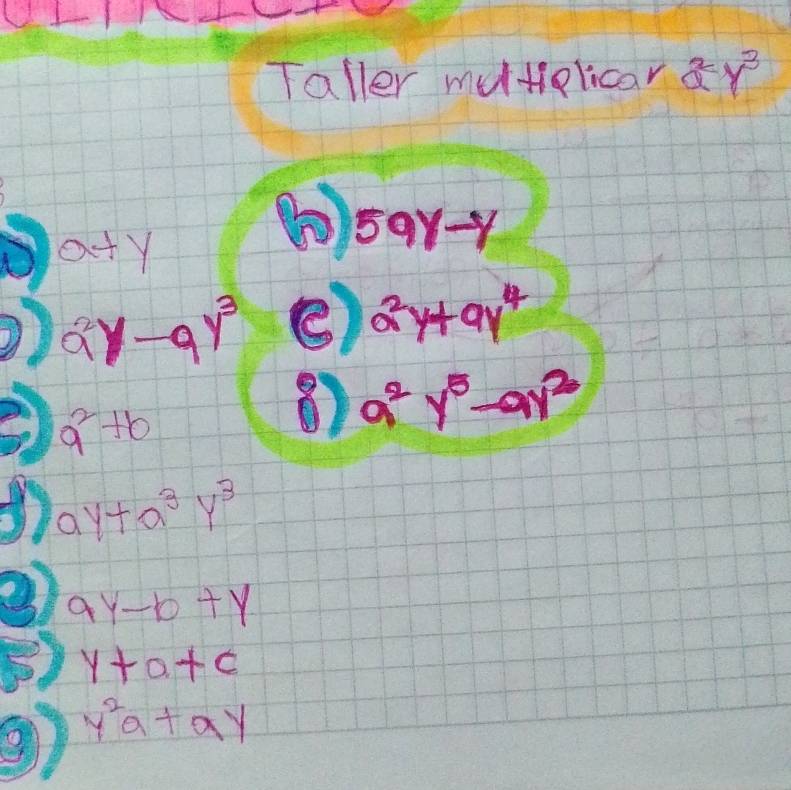 Taller multiplicar a²y³
a) a+y
b) a²y-ay³
c) a²+b
d) ay+a³y³
e) ay-b+y
f) y+a+c
g) y²a+ay
h) 5ay-y
c) a²y+ay⁴
j) a²y⁵-ay²